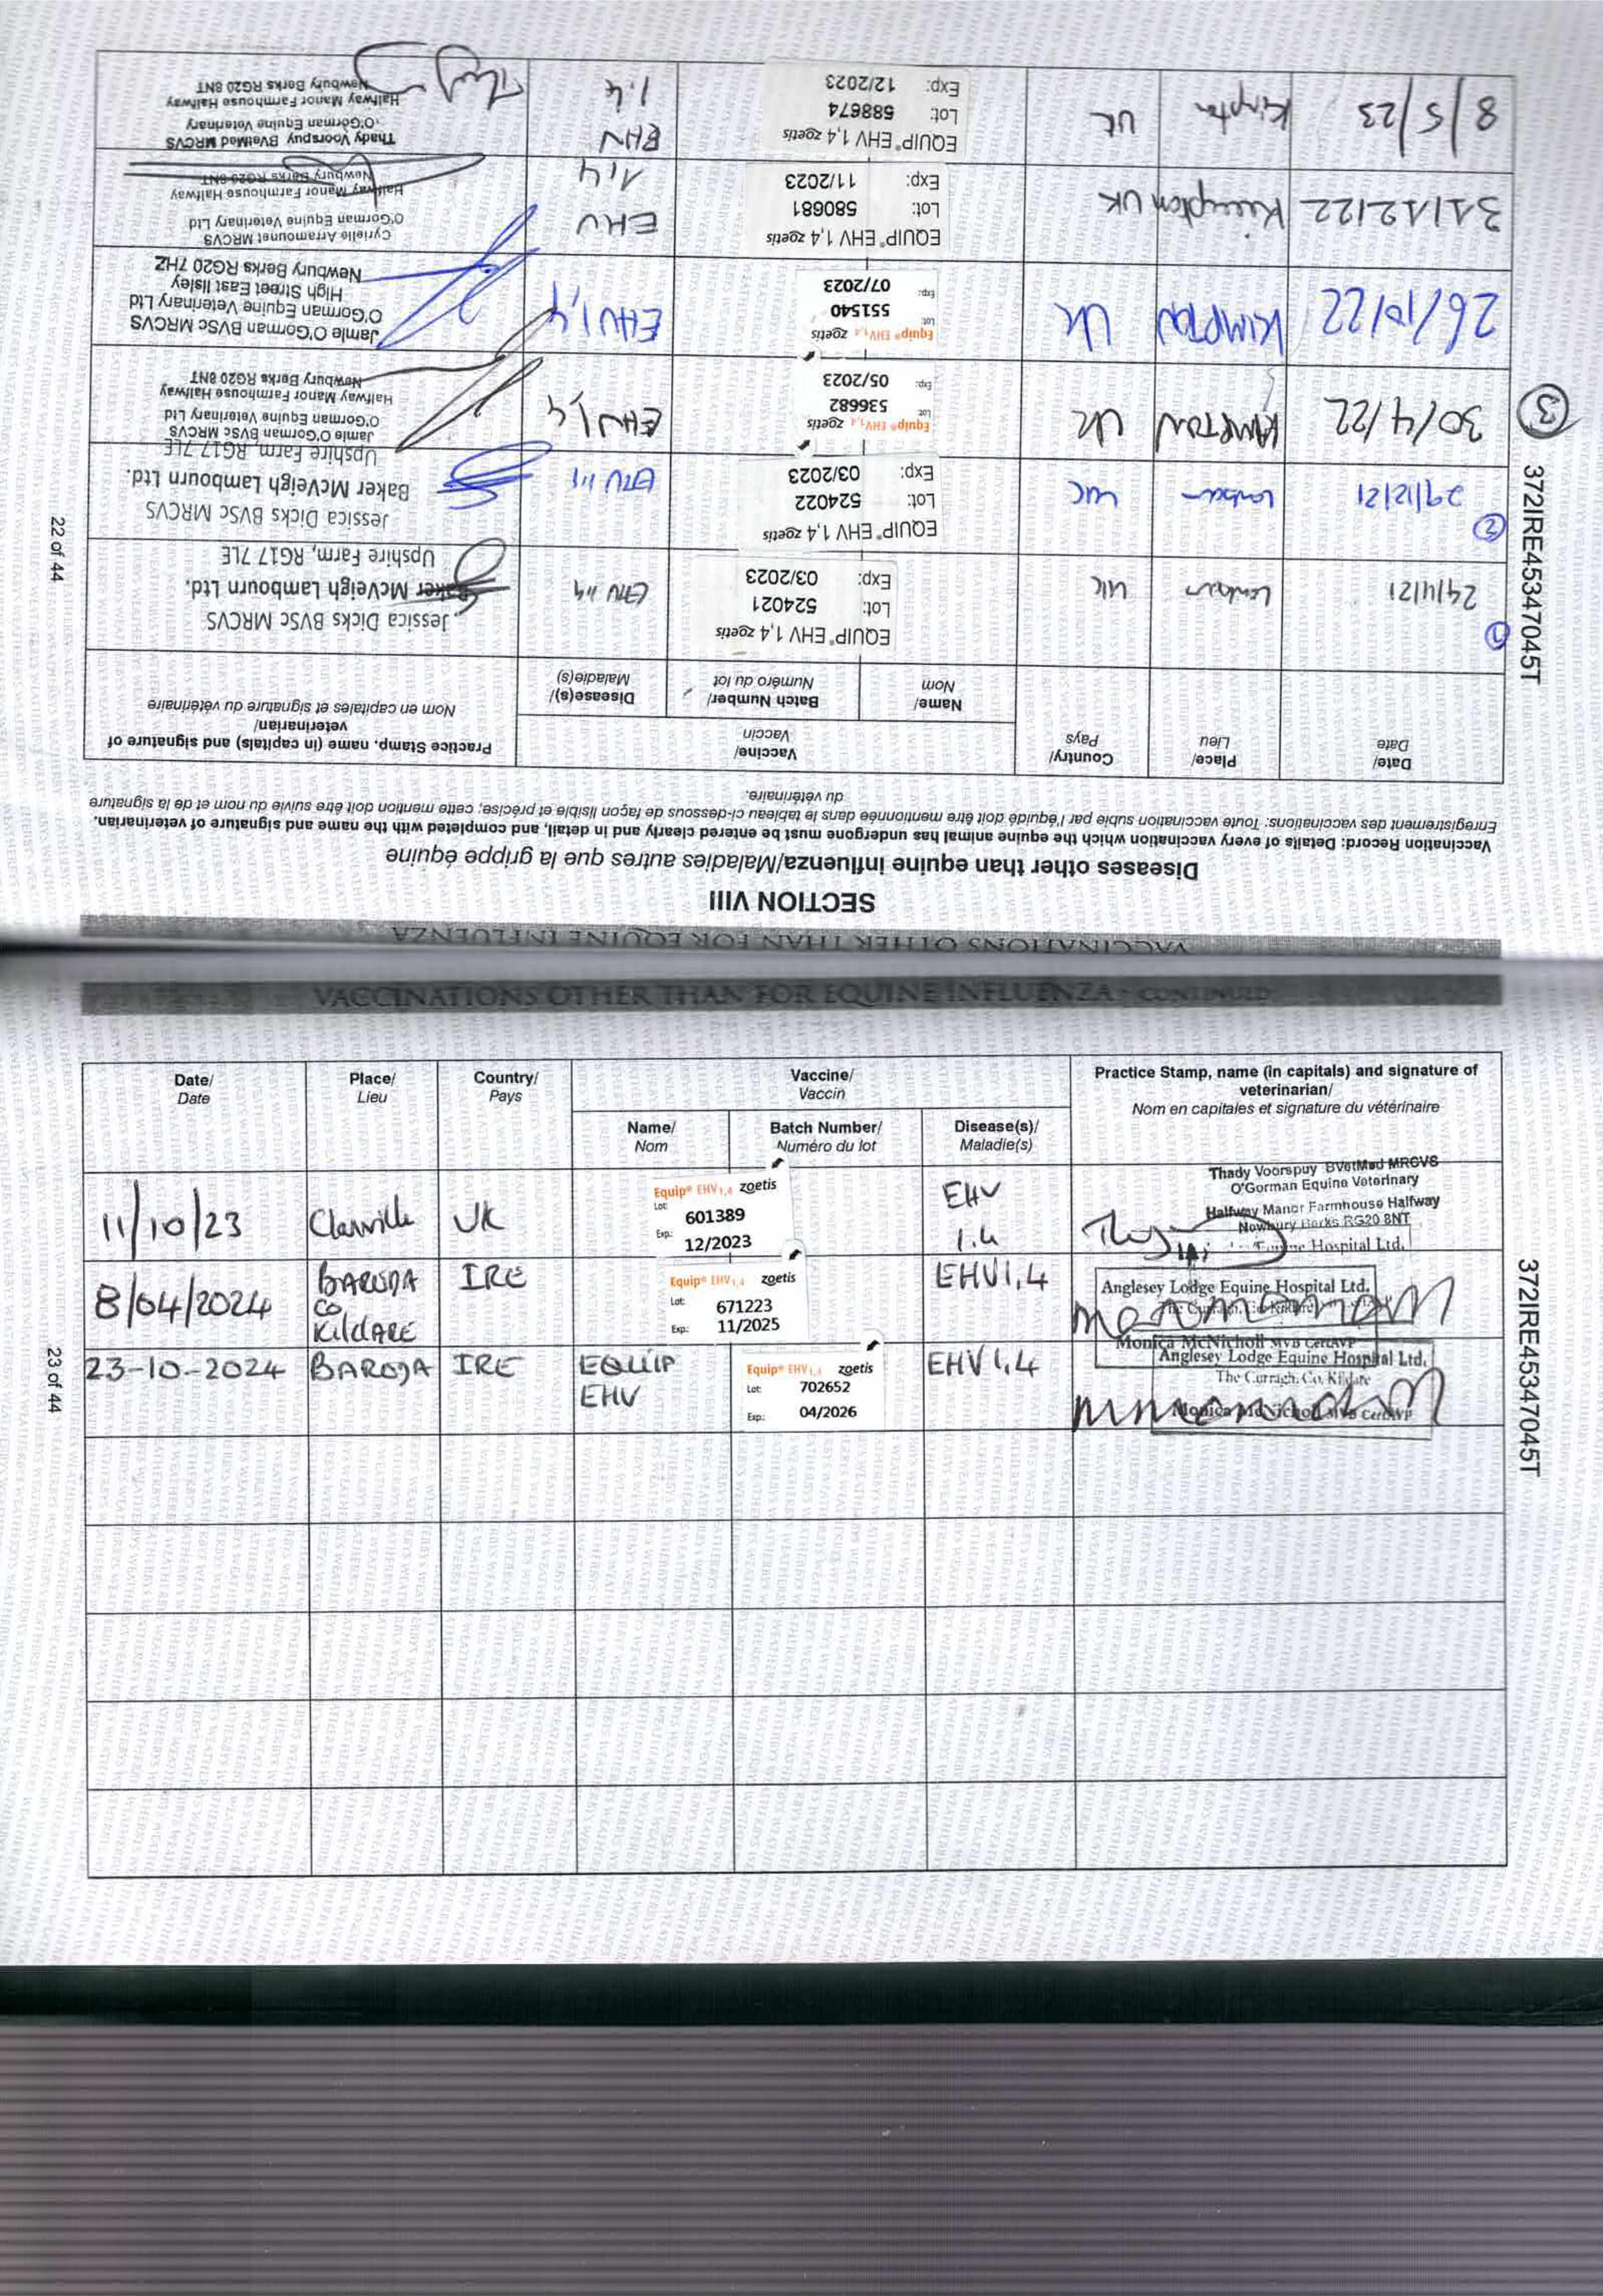 VACCINATIONS OTHER THAN FOR EQUINE INFLUENZA
SECTION VIII
Diseases other than equine influenza/Maladies autres que la grippe équine
Vaccination Record: Details of every vaccination which the equine animal has undergone must be entered clearly and in detail, and completed with the name and signature of veterinarian.
Enregistrement des vaccinations: Toute vaccination subie par l'équidé doit être mentionnée dans le tableau ci-dessous de façon lisible et précise; cette mention doit être suivie du nom et de la signature
du vétérinaire.
Date/
Date
Place/
Lieu
Country/
Pays
Vaccine/
Vaccin
Name/
Nom
Batch Number/
Numéro du lot
Disease(s)/
Maladie(s)
Practice Stamp, name (in capitals) and signature of
veterinarian/
Nom en capitales et signature du vétérinaire
1
24/11/21
UK
EQUIP® EHV 1,4 zoetis
Lot: 524021
Exp: 03/2023
Jessica Dicks BVSc MRCVS
Baker McVeigh Lambourn Ltd.
Upshire Farm, RG17 7LE
2
29/12/21
UK
EQUIP® EHV 1,4 zoetis
Lot: 524022
Exp: 03/2023
Jessica Dicks BVSc MRCVS
Baker McVeigh Lambourn Ltd.
Upshire Farm RG17 7LE
3
30/4/22
KIMPTON
UK
Equip® EHV1,4 zoetis
Lot: 536682
Exp: 05/2023
EHV1,4
Jamie O'Gorman BVSc MRCVS
O'Gorman Equine Veterinary Ltd
Halfway Manor Farmhouse Halfway
Newbury Berks RG20 8NT
26/10/22
KIMPTON
UK
Equip® EHV1,4 zoetis
Lot: 551540
Exp: 07/2023
EHV1,4
Jamie O'Gorman BVSc MRCVS
O'Gorman Equine Veterinary Ltd
High Street East Ilsley
Newbury Berks RG20 7HZ
31/12/22
Kimpton
UK
EQUIP® EHV 1,4 zoetis
Lot: 580681
Exp: 11/2023
EHV
1,4
Cyrielle Arramounet MRCVS
O'Gorman Equine Veterinary Ltd
Halfway Manor Farmhouse Halfway
Newbury Berks RG20 8NT
8/5/23
Kimpton
UK
EQUIP® EHV 1,4 zoetis
Lot: 588674
Exp: 12/2023
EHV
1.4
Thady Voorspuy BVetMed MRCVS
O'Gorman Equine Veterinary
Halfway Manor Farmhouse Halfway
Newbury Berks RG20 8NT
372IRE45347045T
22 of 44
VACCINATIONS OTHER THAN FOR EQUINE INFLUENZA - CONTINUED
Date/
Date
Place/
Lieu
Country/
Pays
Vaccine/
Vaccin
Name/
Nom
Batch Number/
Numéro du lot
Disease(s)/
Maladie(s)
Practice Stamp, name (in capitals) and signature of
veterinarian/
Nom en capitales et signature du vétérinaire
11/10/23
Clanville
UK
Equip® EHV1,4 zoetis
Lot: 601389
Exp: 12/2023
EHV
1.4
Thady Voorspuy BVetMed MRCVS
O'Gorman Equine Veterinary
Halfway Manor Farmhouse Halfway
Newbury Berks RG20 8NT
Equine Hospital Ltd.
8/04/2024
BARODA
CO
KILDARE
IRE
Equip® EHV1,4 zoetis
Lot: 671223
Exp: 11/2025
EHV1,4
Anglesey Lodge Equine Hospital Ltd.
The Curragh, Co. Kildare
Monica McNicholl MVB CertAVP
23-10-2024
BARODA
IRE
EQUIP
EHV
Equip® EHV1,4 zoetis
Lot: 702652
Exp: 04/2026
EHV1,4
Anglesey Lodge Equine Hospital Ltd.
The Curragh, Co. Kildare
Monica McNicholl MVB CertAVP
372IRE45347045T
23 of 44